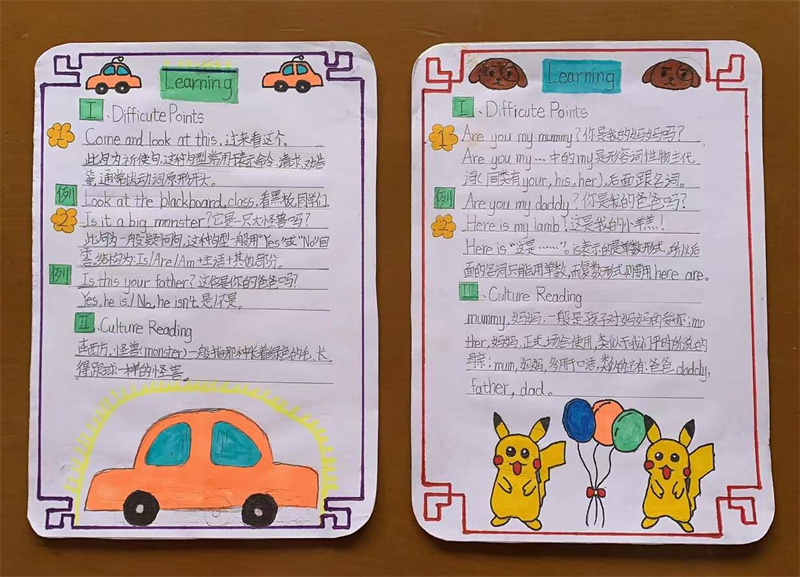 Learning
I、Difficute Points
1
Come and look at this. 过来看这个。
此句为祈使句,这种句型常用于表示命令、请求、劝告
等,通常以动词原形开头。
例
Look at the blackboard, class. 看黑板,同学们
2
Is it a big monster? 它是一只大怪兽吗?
此句为一般疑问句,这种句型一般用"Yes"或"No"回
答。结构为:Is/Are/Am+主语+其他部分。
例
Is this your father? 这位是你的爸爸吗?
Yes, he is./No, he isn't. 是/不是。
II、Culture Reading
在西方,怪兽(monster)一般指那种长着绿色的毛,长
得跟球一样的怪兽。
Learning
I、Difficute Points
1
Are you my mummy? 你是我的妈妈吗?
Are you my…中的my是形容词性物主代
词(同类有your, his, her),后面跟名词。
例
Are you my daddy? 你是我的爸爸吗?
2
Here is my lamb! 这是我的小羊羔!
Here is "这是……"。is表示的是单数形式,所以后
面的名词只能用单数,而复数形式则要用here are。
II、Culture Reading
mummy,妈妈,一般是孩子对妈妈的爱称;mo
ther,妈妈,正式场合使用,类似于我们平时所说的
母亲;mum,妈妈,多用于口语,类似的还有:爸爸daddy,
father, dad。